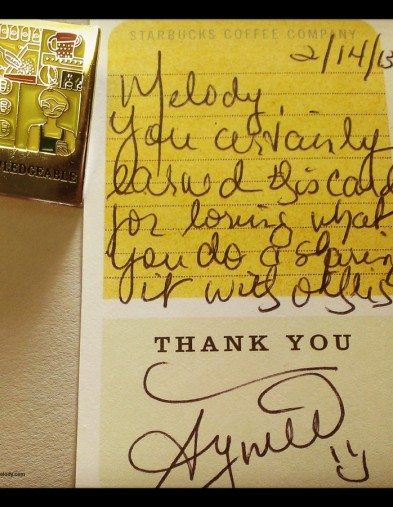 STARBUCKS COFFEE COMPANY
2/14/13
Melody,
You certainly
earned this card
for loving what
you do & sharin
it with others
THANK YOU
LEDGEABLE
lody.com